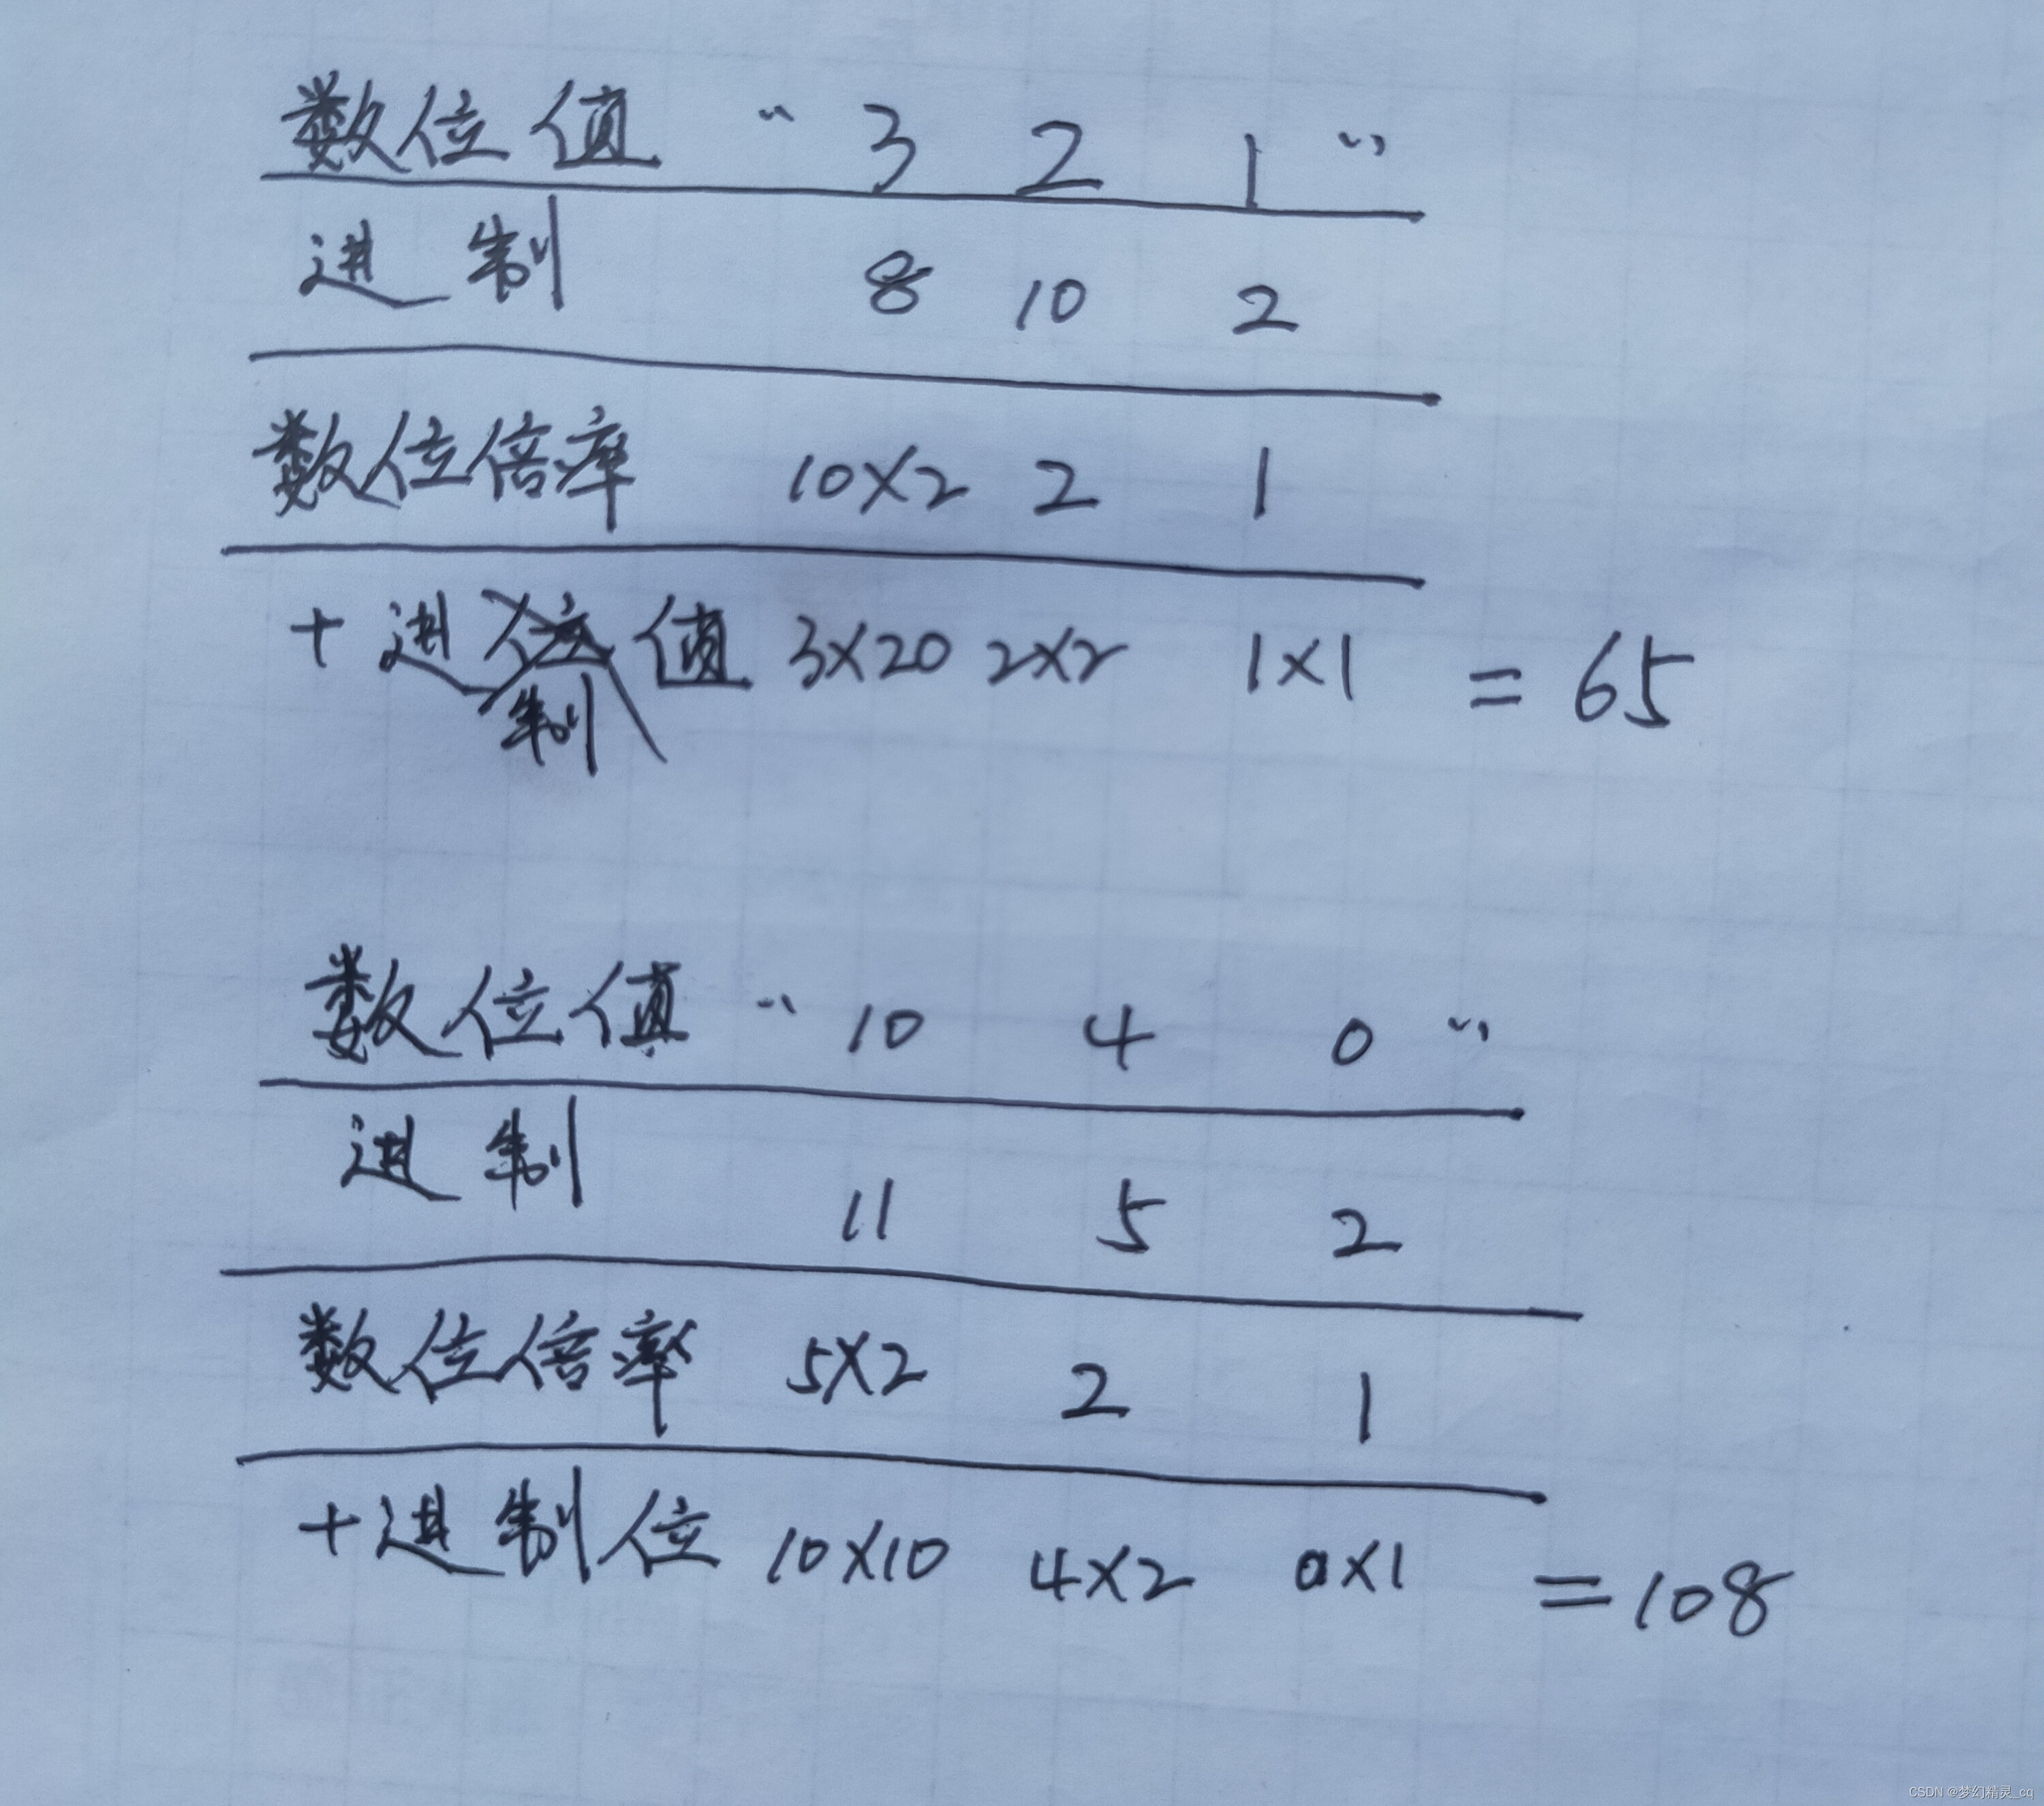 数位值 “ 3 2 1 ”
进制 8 10 2
数位倍率 10×2 2 1
+进制值 3×20 2×2 1×1 = 65
数位值 “ 10 4 0 ”
进制 11 5 2
数位倍率 5×2 2 1
+进制位 10×10 4×2 0×1 = 108
CSDN @梦幻精灵_cq